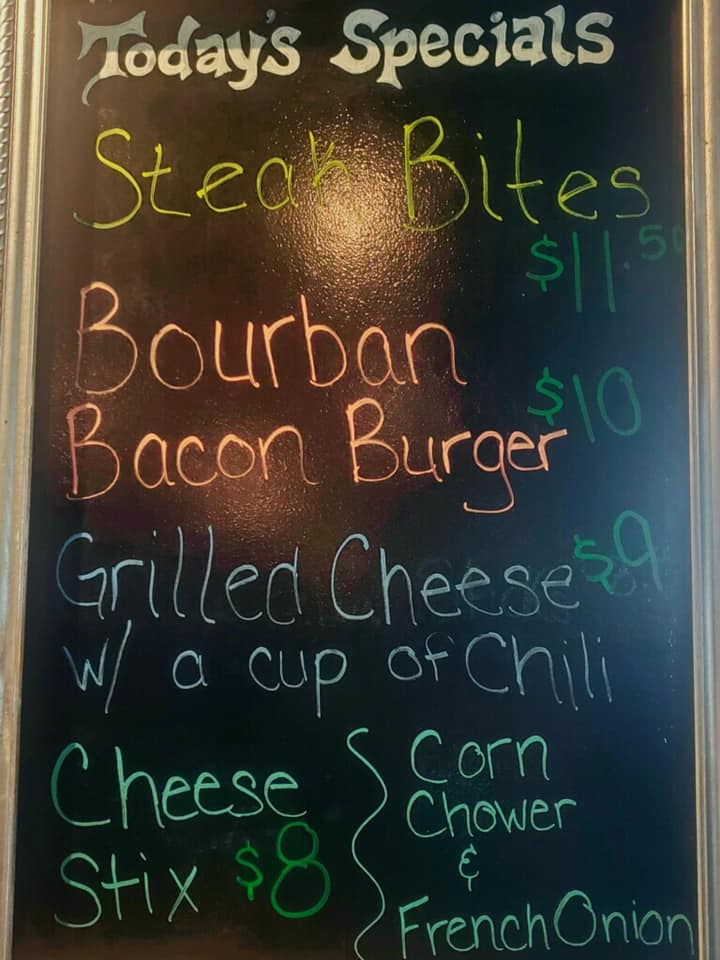 Today's Specials
Steak Bites
$11.50
Bourban
$10
Bacon Burger
Grilled Cheese $9
w/ a cup of Chili
Cheese
Stix $8
Corn
Chower
&
French Onion